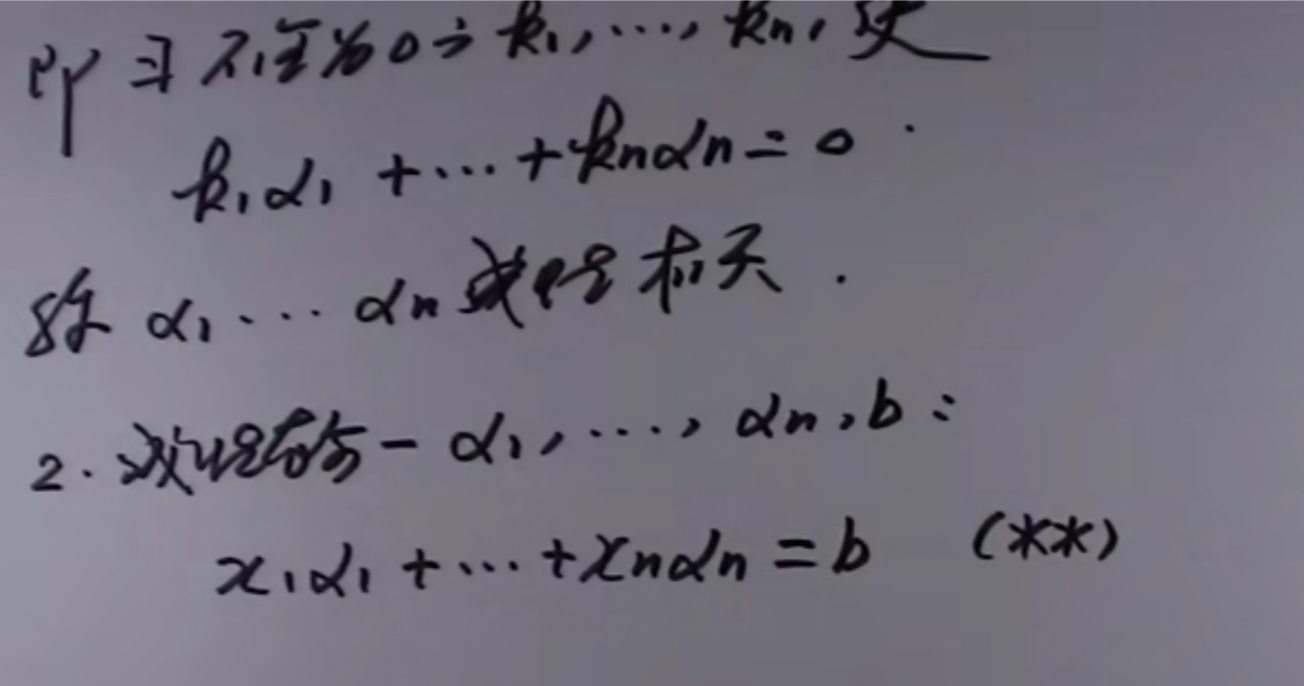 即∃不全为0之k₁,…,kₙ,使
k₁α₁+…+kₙαₙ=0.
称α₁…αₙ线性相关.
2.线性表示-α₁,…,αₙ,b:
x₁α₁+…+xₙαₙ=b (**)